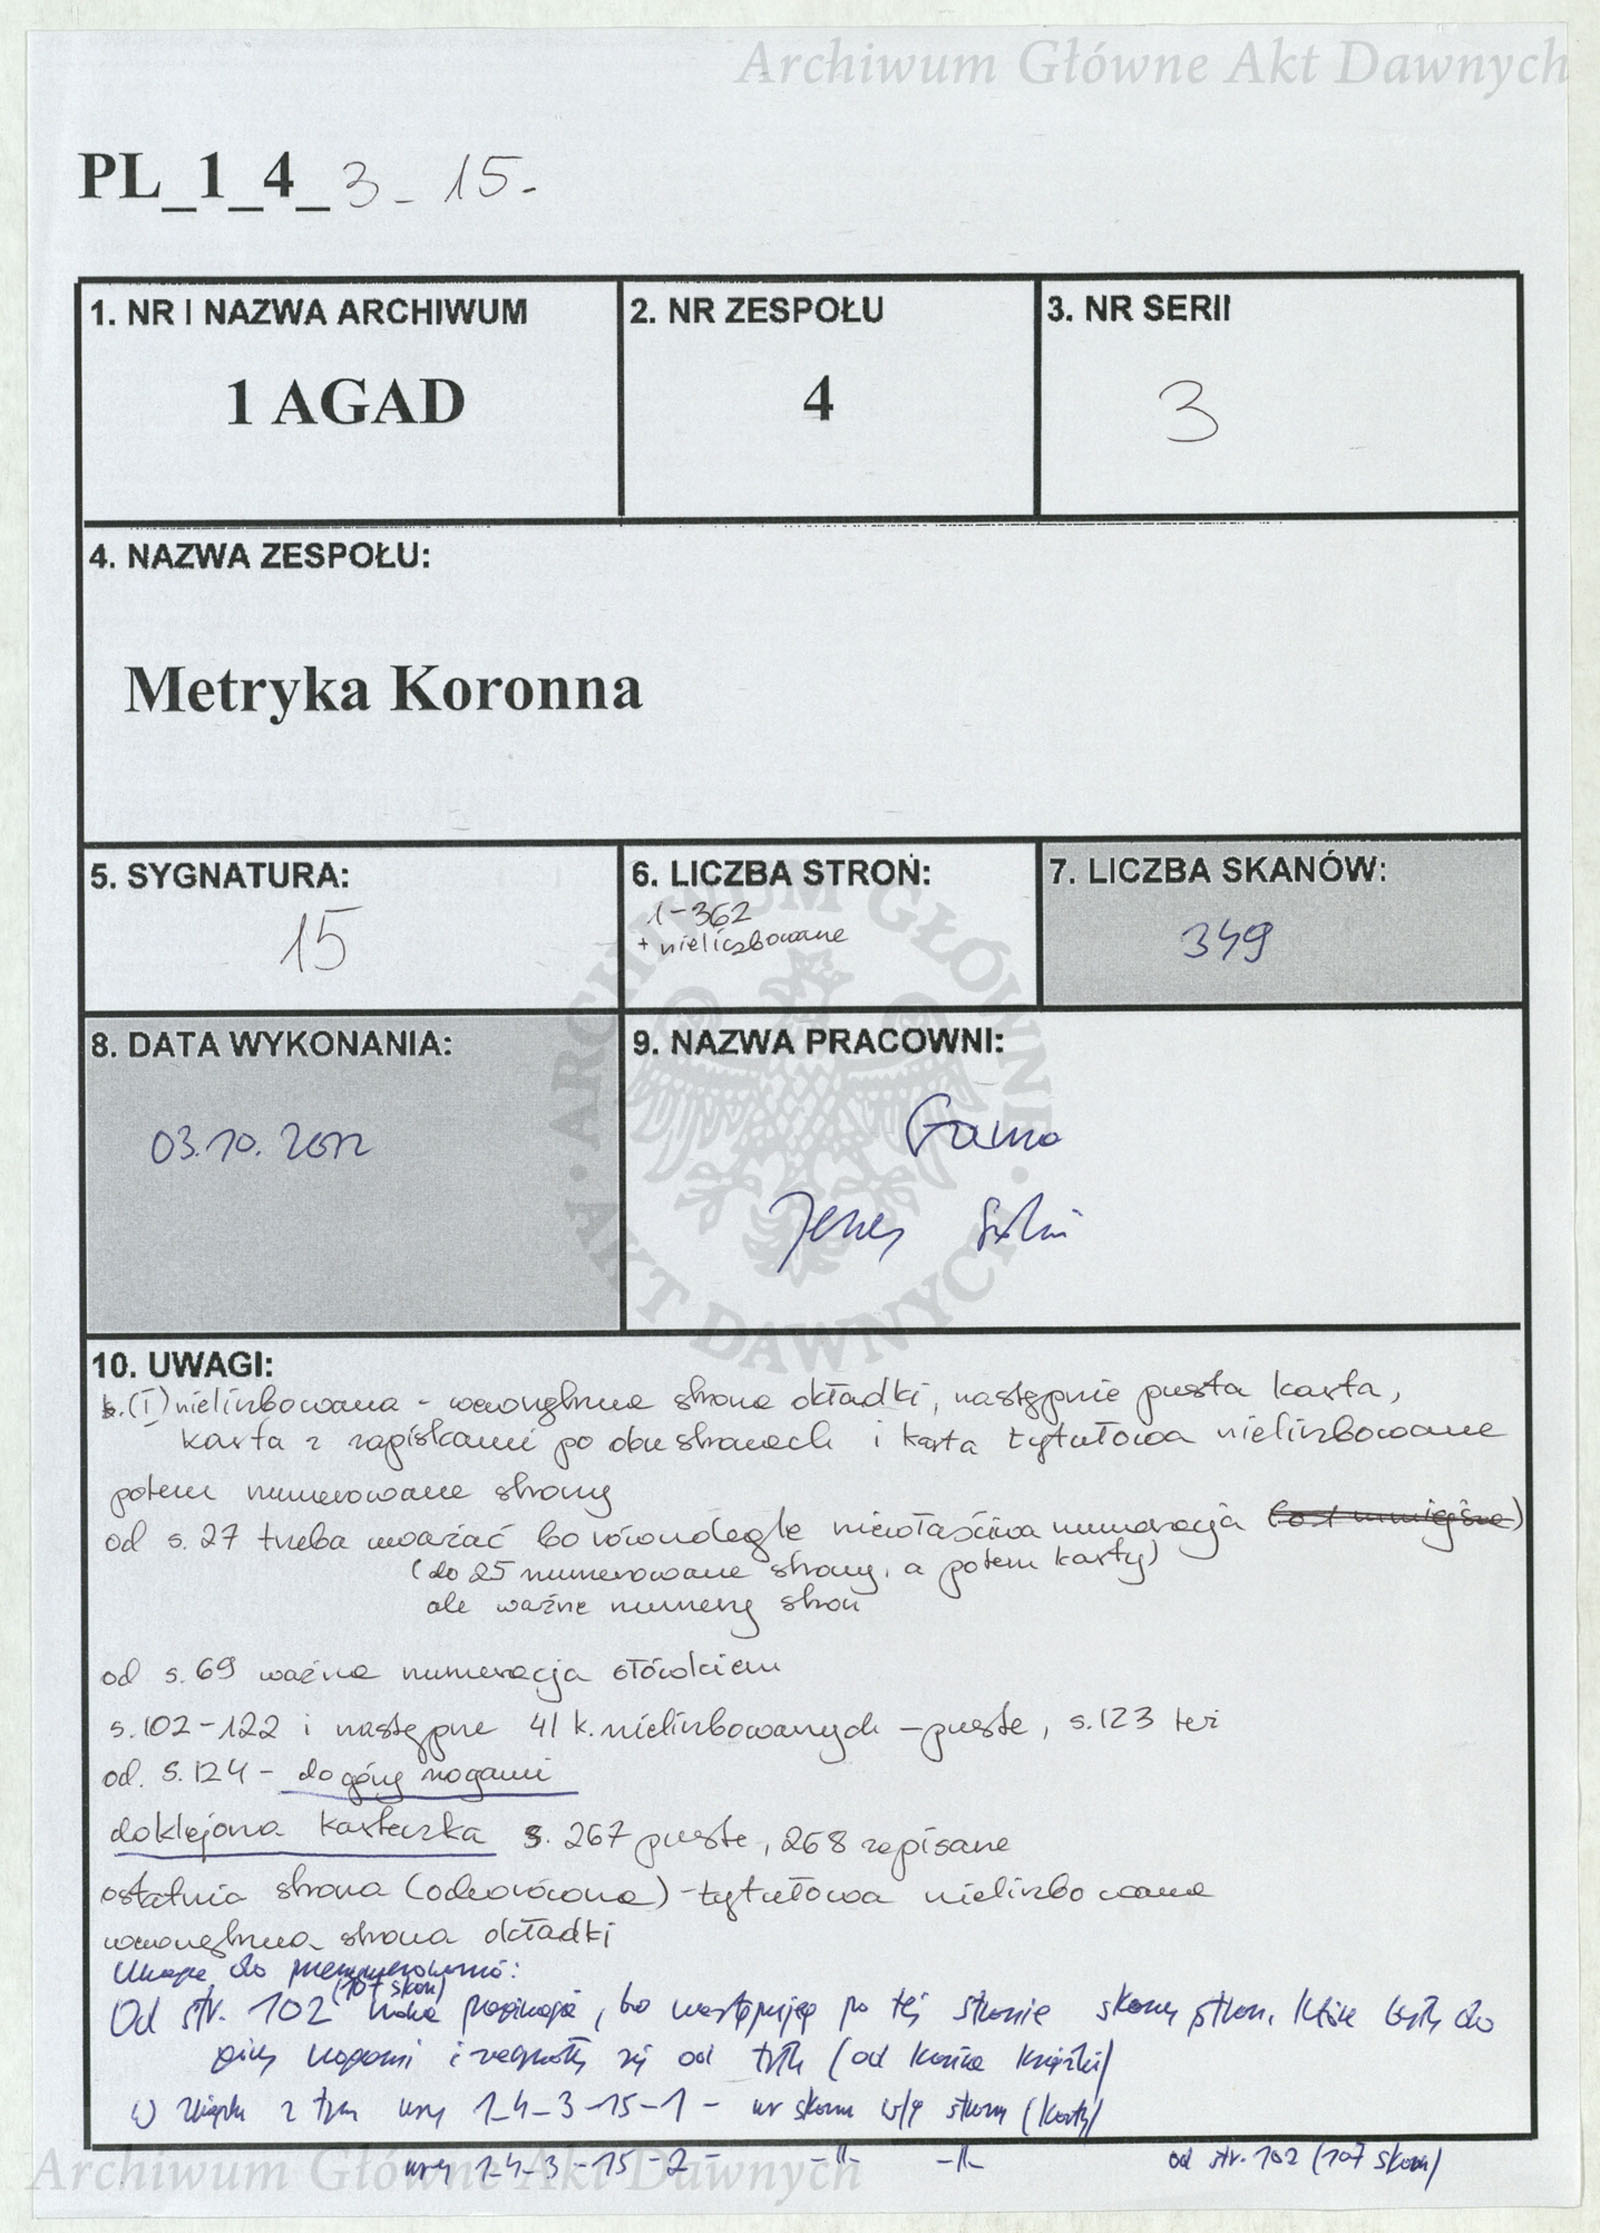 Archiwum Główne Akt Dawnych
PL_1_4_3_15-
1. NR I NAZWA ARCHIWUM
1 AGAD
2. NR ZESPOŁU
4
3. NR SERII
3
4. NAZWA ZESPOŁU:
Metryka Koronna
5. SYGNATURA:
15
6. LICZBA STRON:
1-362
+ nieliczbowane
7. LICZBA SKANÓW:
349
8. DATA WYKONANIA:
03.10.2012
9. NAZWA PRACOWNI:
ARCHIWUM GŁÓWNE · AKT DAWNYCH ·
10. UWAGI:
k.(I) nieliczbowana - wewnętrzna strona okładki, następnie pusta karta,
karta z zapiskami po obu stronach i karta tytułowa nieliczbowane
potem numerowane strony
od s. 27 trzeba uważać bo równoległe niewłaściwa numeracja
(do 25 numerowane strony, a potem karty)
ale ważne numery stron
od s. 69 ważna numeracja ołówkiem
s. 102-122 i następne 41 k. nieliczbowanych - puste, s. 123 też
od. s. 124 - do góry nogami
doklejona karteczka s. 267 puste, 268 zapisane
ostatnia strona (odwrócona) - tytułowa nieliczbowana
wewnętrzna strona okładki
Uwaga do
(107 skan)
Od str. 102 paginacja, bo następują po tej stronie skany stron, które były do
góry nogami i zaczęły się od tyłu (od końca książki)
W związku z tym 1_4_3_15-1 - nr skanu w/g strony (karty)
1_4_3_15-2 - -//- -//- od str. 102 (107 skan)
Archiwum Główne Akt Dawnych